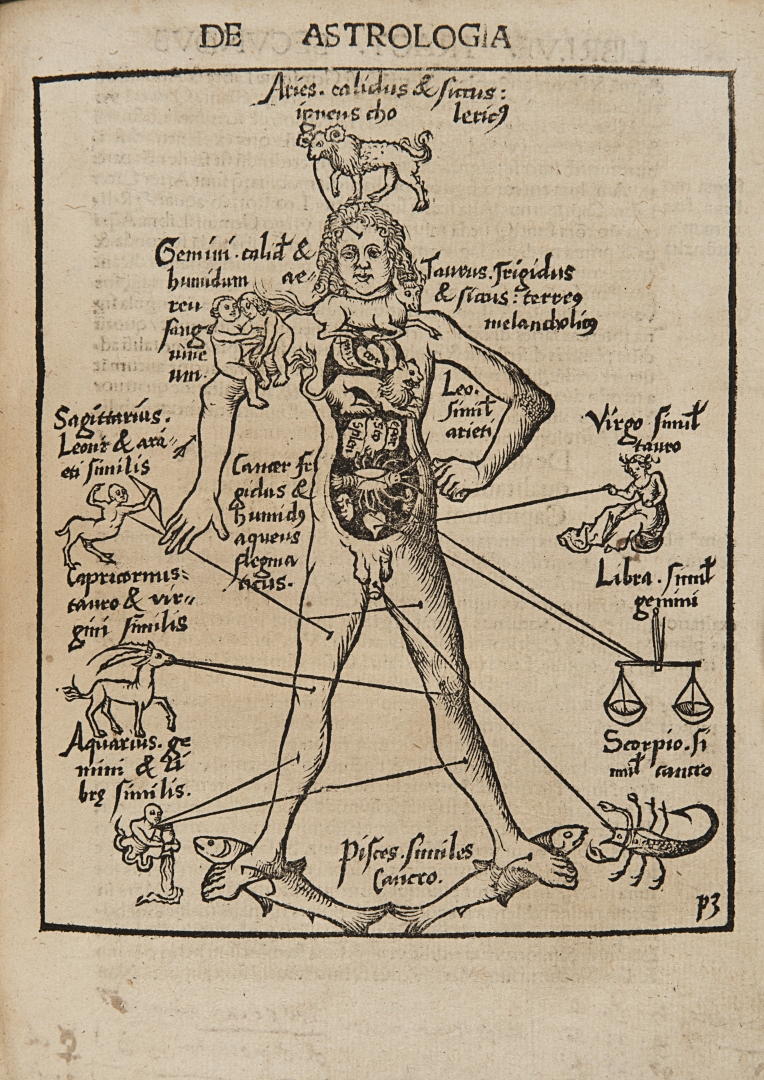 DE ASTROLOGIA
Aries. calidus & siccus:
igneus cho lericꝰ
Gemini. calid &
humidum ae-
reu
sang
uine
um.
Taurus. frigidus
& sicus: terreꝰ
melancholicꝰ
Leo.
simil
arieti
Sagittarius.
Leoni & ari-
eti similis
Cancer fri
gidus &
humidꝰ
aqueus
flegma
ticus.
Virgo simil
tauro
Capricornus:
tauro & vir-
gini similis
Libra. simil
gemini
Aquarius. ge
mini & li
bre similis.
Scorpio. si
mil cancro
Pisces. similes
Cancro.
p3